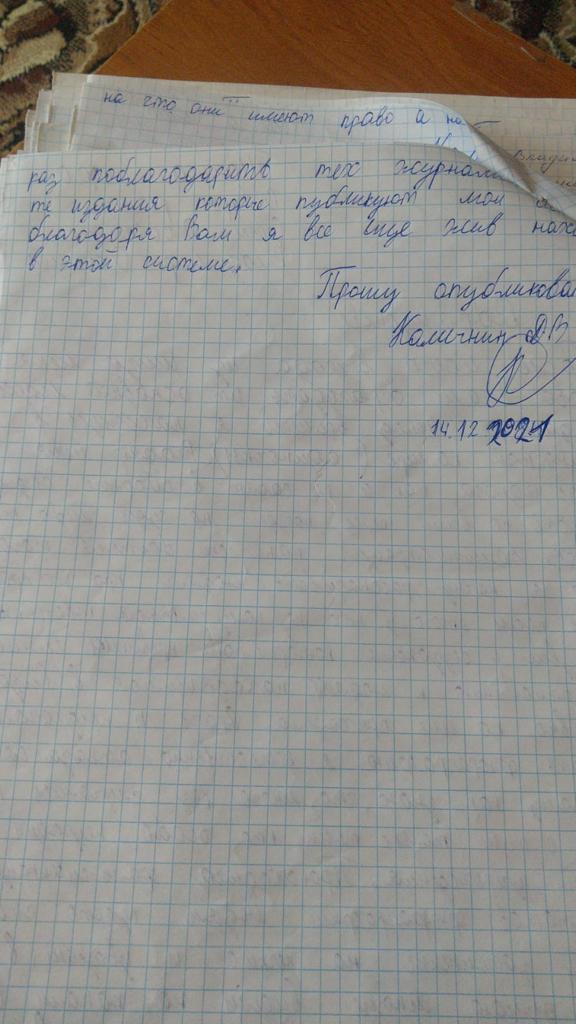 на что они имеют право а на
Владим
раз поблагодарить тех журнали
те издания которые публикуют мои
благодаря Вам я все еще жив нахо
в этой системе.
Прошу опубликова
Каличнин Д.В
14.12 2021